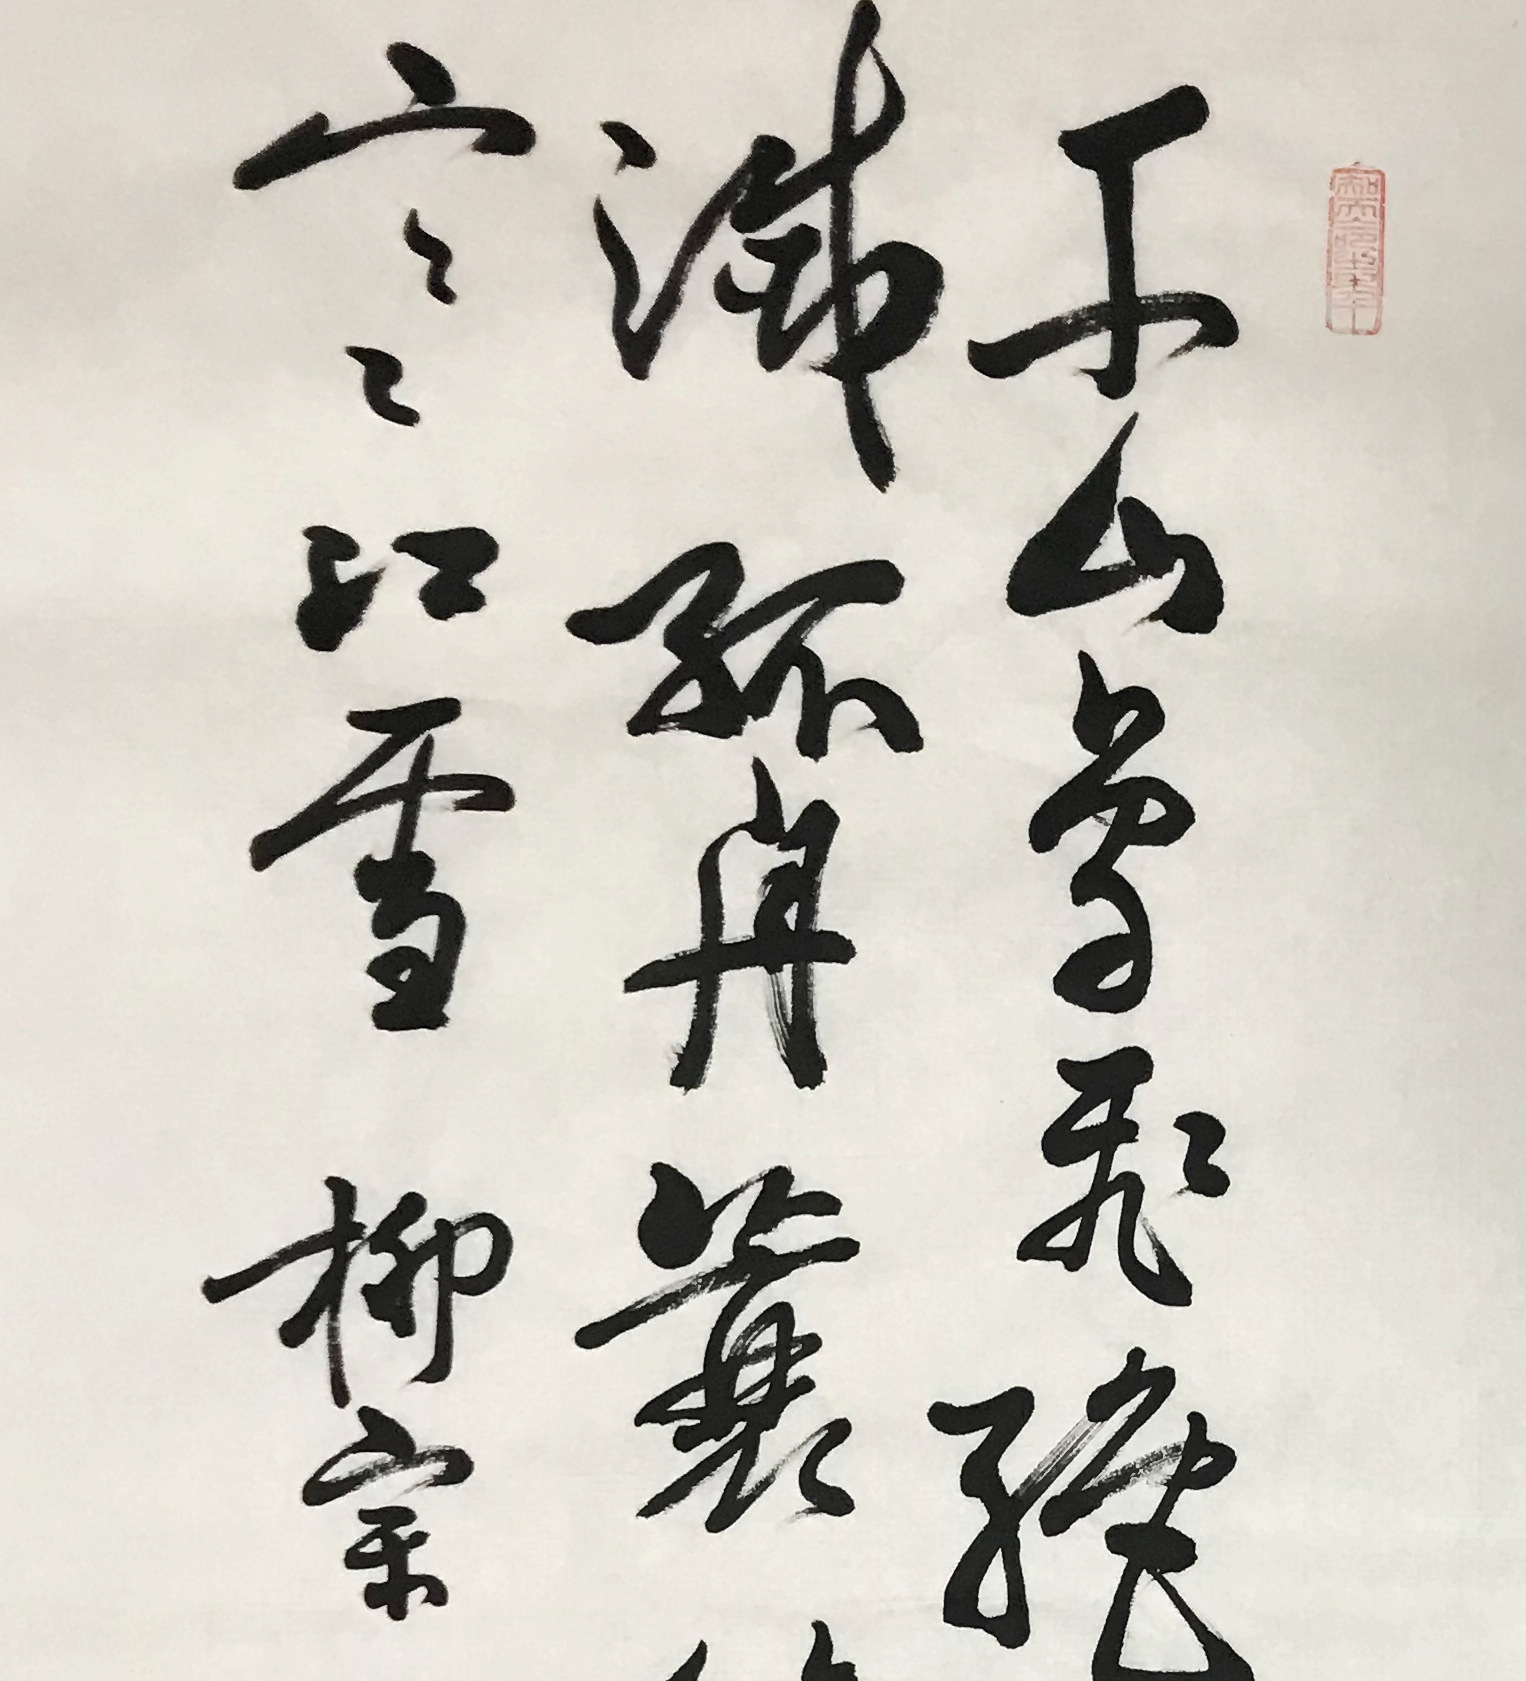 千山鳥飛絕
滅孤舟蓑
寒江雪 柳宗